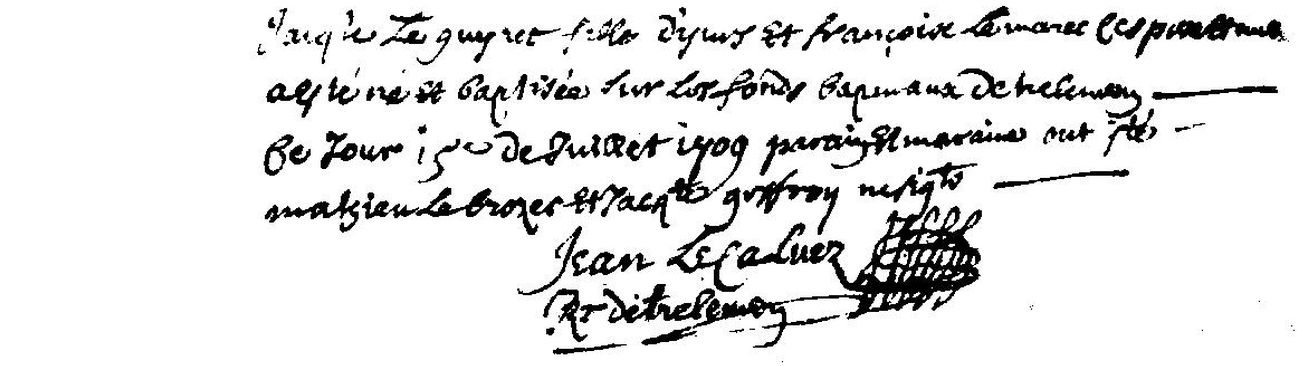 Jacq^te Le guyret fille d'yves Et françoise Lemarec
a esté né et baptisée sur les fonds baptimaux De trelevern
Ce Jour 15e De Juillet 1709 parain Et maraine ont esté
mathieu Le brozec Et Jacq^te geffroy ne sig^te
Jean Le Calvez
Rr de trelevern